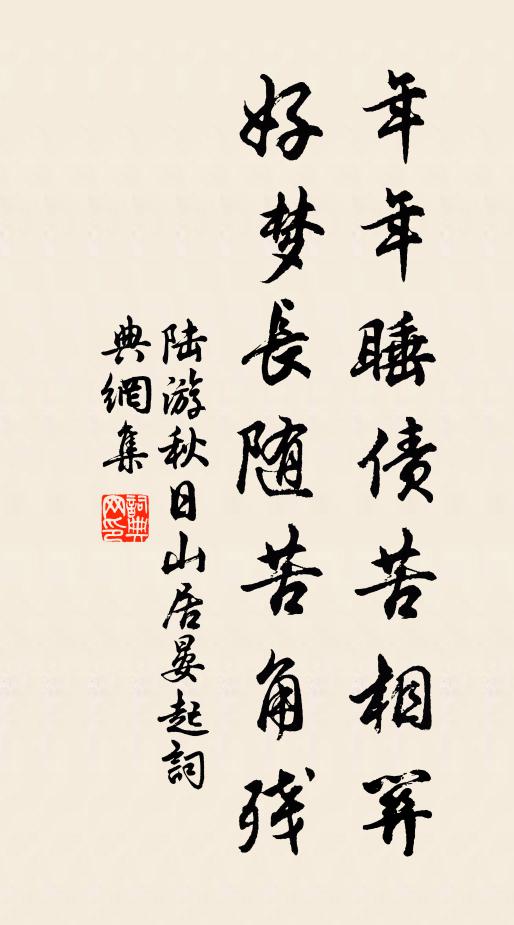 年年睡债苦相
好梦長随苦角残
陆游秋日山居晏起詞
典網集
詞典
网印